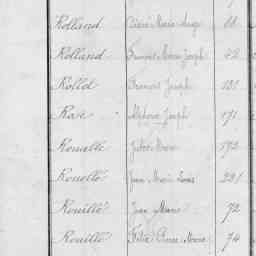 Rolland Marie Ange 88
Rolland François Marie Joseph 42
Rollet François Joseph 131
Rose Alphonse Joseph 171
Rouault Jules Marie 172
Rouello Jean Marie Louis 291
Rouillé Jean Marie 72
Rouillé Félix Pierre Marie 74